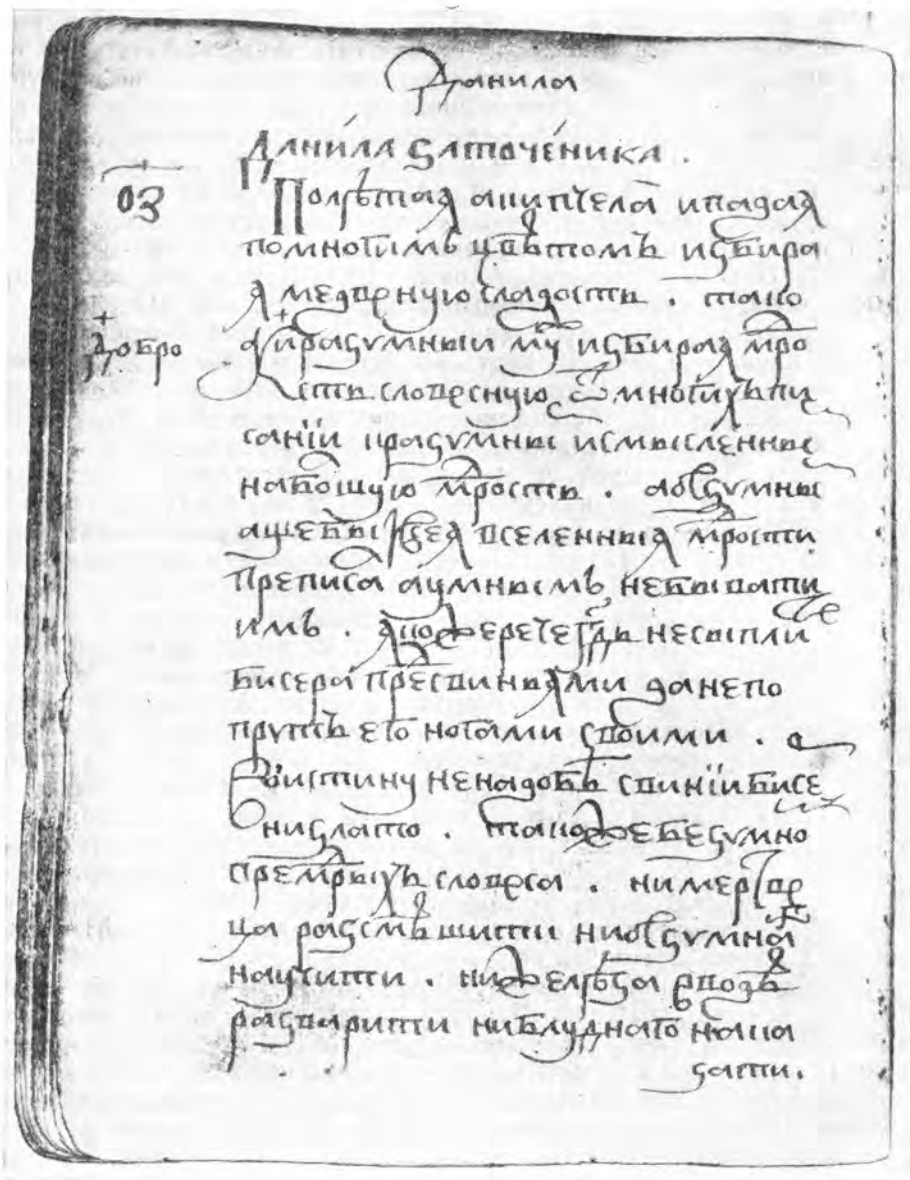 Данила
Данила заточеника .
ѯз Полѣтаꙗ аки пчела и падаꙗ
по многимъ цвѣтомъ избира
ꙗ медвеную сладость . тако
добро и разумныи мꙋ избираꙗ мро
сть словесную ѿ многихъ пи
санїи и разумны и смысленны
мрость .
вселенныꙗ мрости
преписа а умнымъ не бывати
имъ . ꙗкоже рече гдь не сыпли
бисера пре свиньꙗми да не по
прутъ его ногами своими .
Воистину не надобѣ свинїи бисе
ни злато . такоже безумно
премрыхъ словеса . ни мертве
ца разсмѣшити ни безумна
научити . ни желѣза в возѣ
разварити ни блуднаго нака
зати .